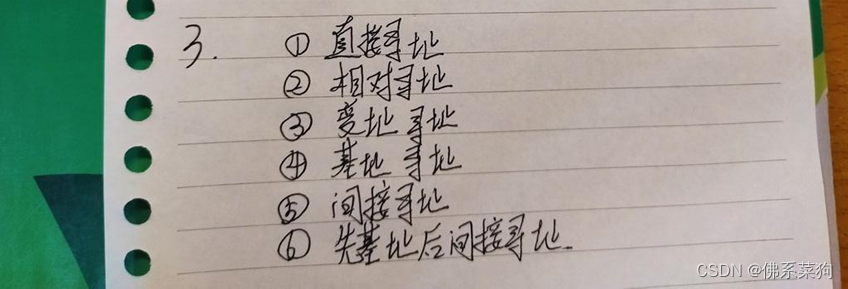 3. ① 直接寻址
② 相对寻址
③ 变址 寻址
④ 基址 寻址
⑤ 间接寻址
⑥ 先基址后间接寻址.
CSDN @佛系菜狗